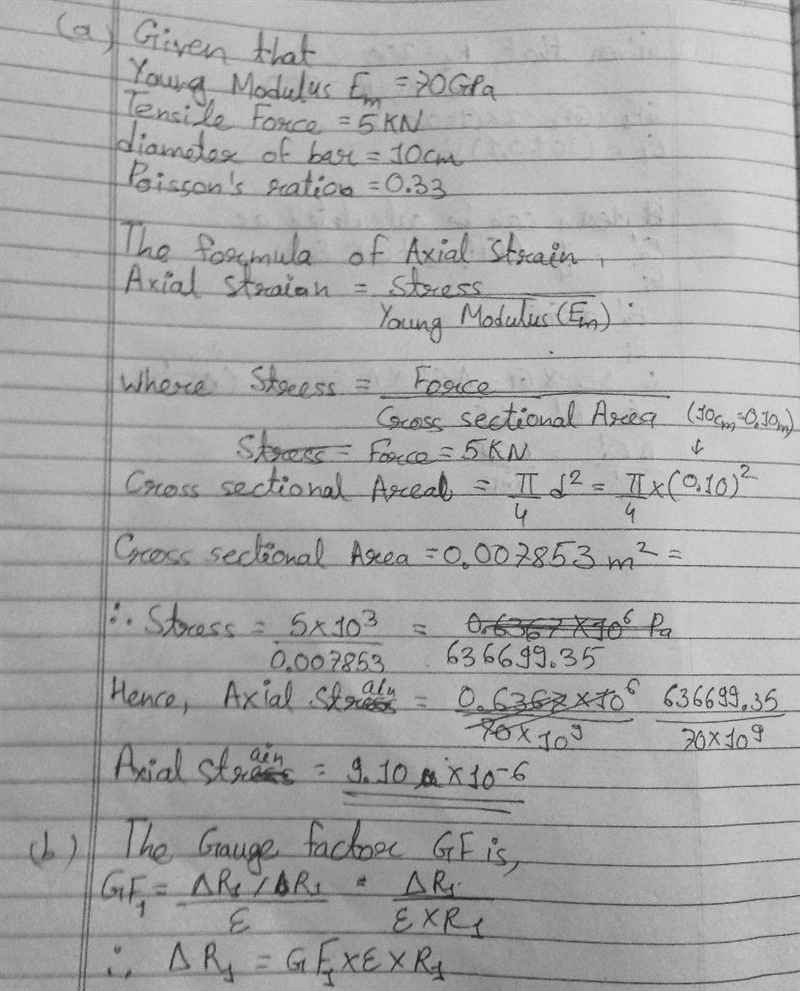 (a) Given that
Young Modulus Em = 70GPa
Tensile Force = 5KN
diameter of bar = 10cm
Poisson's ration = 0.33
The formula of Axial Strain,
Axial Straian = Stress
Young Modulus (Em)
Where Stress = Force
Cross sectional Area (10cm=0.10m)
Stress = Force = 5KN ↓
Cross sectional Areal = π/4 d² = π/4 × (0.10)²
Cross sectional Area = 0.007853 m² =
∴ Stress = 5×10³ = 0.6367×10⁶ Pa
0.007853 636699.35
Hence, Axial Strain = 0.6367×10⁶ 636699.35
70×10⁹ 70×10⁹
Axial Strain = 9.10 ×10⁻⁶
(b) The Gauge factor GF is,
GF₁ = ΔR₁/ΔR₁ = ΔR₁
ε ε×R₁
∴ ΔR₁ = GF₁×ε×R₁